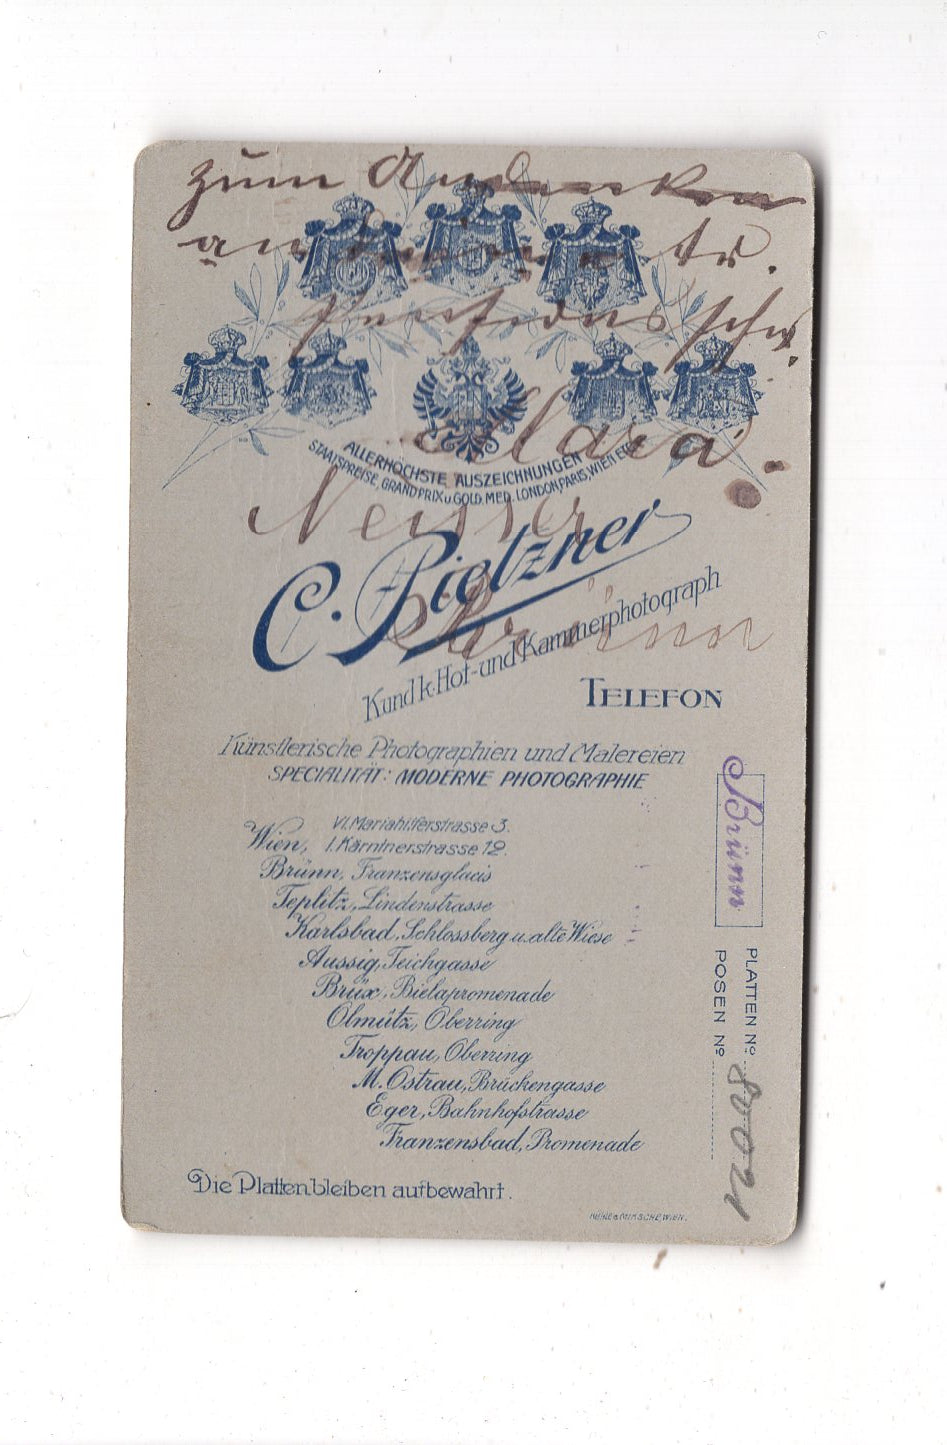 zum Andenken
an
Clara.
ALLERHÖCHSTE AUSZEICHNUNGEN
STAATSPREISE, GRAND PRIX u. GOLD. MED. LONDON, PARIS, WIEN
C. Pietzner
K und k. Hof- und Kammerphotograph
Brünn
TELEFON
Künstlerische Photographien und Malereien
SPECIALITÄT: MODERNE PHOTOGRAPHIE
VI. Mariahilferstrasse 3.
Wien, I. Kärntnerstrasse 12.
Brünn, Franzensglacis
Teplitz, Lindenstrasse
Karlsbad, Schlossberg u. alte Wiese
Aussig, Teichgasse
Brüx, Bielapromenade
Olmütz, Oberring
Troppau, Oberring
M. Ostrau, Brückengasse
Eger, Bahnhofstrasse
Franzensbad, Promenade
Die Platten bleiben aufbewahrt.
Brünn
PLATTEN No
POSEN No